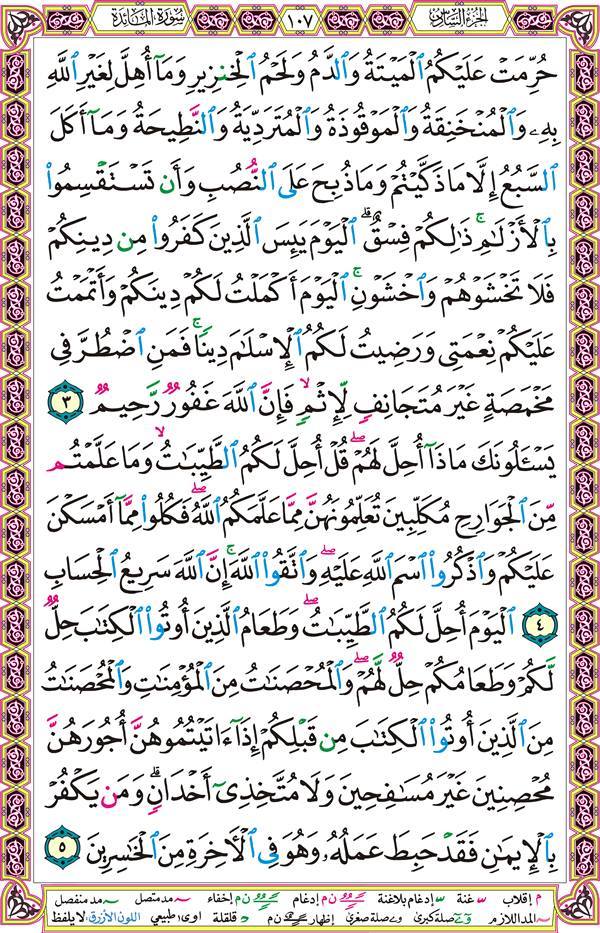 الجزء السادس ١٠٧ سورة المائدة
حُرِّمَتْ عَلَيْكُمُ ٱلْمَيْتَةُ وَٱلدَّمُ وَلَحْمُ ٱلْخِنزِيرِ وَمَآ أُهِلَّ لِغَيْرِ ٱللَّهِ
بِهِۦ وَٱلْمُنْخَنِقَةُ وَٱلْمَوْقُوذَةُ وَٱلْمُتَرَدِّيَةُ وَٱلنَّطِيحَةُ وَمَآ أَكَلَ
ٱلسَّبُعُ إِلَّا مَا ذَكَّيْتُمْ وَمَا ذُبِحَ عَلَى ٱلنُّصُبِ وَأَن تَسْتَقْسِمُوا۟
بِٱلْأَزْلَٰمِ ۚ ذَٰلِكُمْ فِسْقٌ ۗ ٱلْيَوْمَ يَئِسَ ٱلَّذِينَ كَفَرُوا۟ مِن دِينِكُمْ
فَلَا تَخْشَوْهُمْ وَٱخْشَوْنِ ۚ ٱلْيَوْمَ أَكْمَلْتُ لَكُمْ دِينَكُمْ وَأَتْمَمْتُ
عَلَيْكُمْ نِعْمَتِى وَرَضِيتُ لَكُمُ ٱلْإِسْلَٰمَ دِينًا ۚ فَمَنِ ٱضْطُرَّ فِى
مَخْمَصَةٍ غَيْرَ مُتَجَانِفٍ لِّإِثْمٍ ۙ فَإِنَّ ٱللَّهَ غَفُورٌ رَّحِيمٌ ٣
يَسْـَٔلُونَكَ مَاذَآ أُحِلَّ لَهُمْ ۖ قُلْ أُحِلَّ لَكُمُ ٱلطَّيِّبَٰتُ ۙ وَمَا عَلَّمْتُم
مِّنَ ٱلْجَوَارِحِ مُكَلِّبِينَ تُعَلِّمُونَهُنَّ مِمَّا عَلَّمَكُمُ ٱللَّهُ ۖ فَكُلُوا۟ مِمَّآ أَمْسَكْنَ
عَلَيْكُمْ وَٱذْكُرُوا۟ ٱسْمَ ٱللَّهِ عَلَيْهِ ۖ وَٱتَّقُوا۟ ٱللَّهَ ۚ إِنَّ ٱللَّهَ سَرِيعُ ٱلْحِسَابِ
٤ ٱلْيَوْمَ أُحِلَّ لَكُمُ ٱلطَّيِّبَٰتُ ۖ وَطَعَامُ ٱلَّذِينَ أُوتُوا۟ ٱلْكِتَٰبَ حِلٌّ
لَّكُمْ وَطَعَامُكُمْ حِلٌّ لَّهُمْ ۖ وَٱلْمُحْصَنَٰتُ مِنَ ٱلْمُؤْمِنَٰتِ وَٱلْمُحْصَنَٰتُ
مِنَ ٱلَّذِينَ أُوتُوا۟ ٱلْكِتَٰبَ مِن قَبْلِكُمْ إِذَآ ءَاتَيْتُمُوهُنَّ أُجُورَهُنَّ
مُحْصِنِينَ غَيْرَ مُسَٰفِحِينَ وَلَا مُتَّخِذِىٓ أَخْدَانٍ ۗ وَمَن يَكْفُرْ
بِٱلْإِيمَٰنِ فَقَدْ حَبِطَ عَمَلُهُۥ وَهُوَ فِى ٱلْـَٔاخِرَةِ مِنَ ٱلْخَٰسِرِينَ ٥
م إقلاب غنة إدغام بلاغنة ن م إدغام ن م إخفاء مد متصل مد منفصل
المد اللازم صلة كبرى صلة صغرى إظهار ن م قلقلة اوى طبيعي اللون الأزرق: لا يلفظ